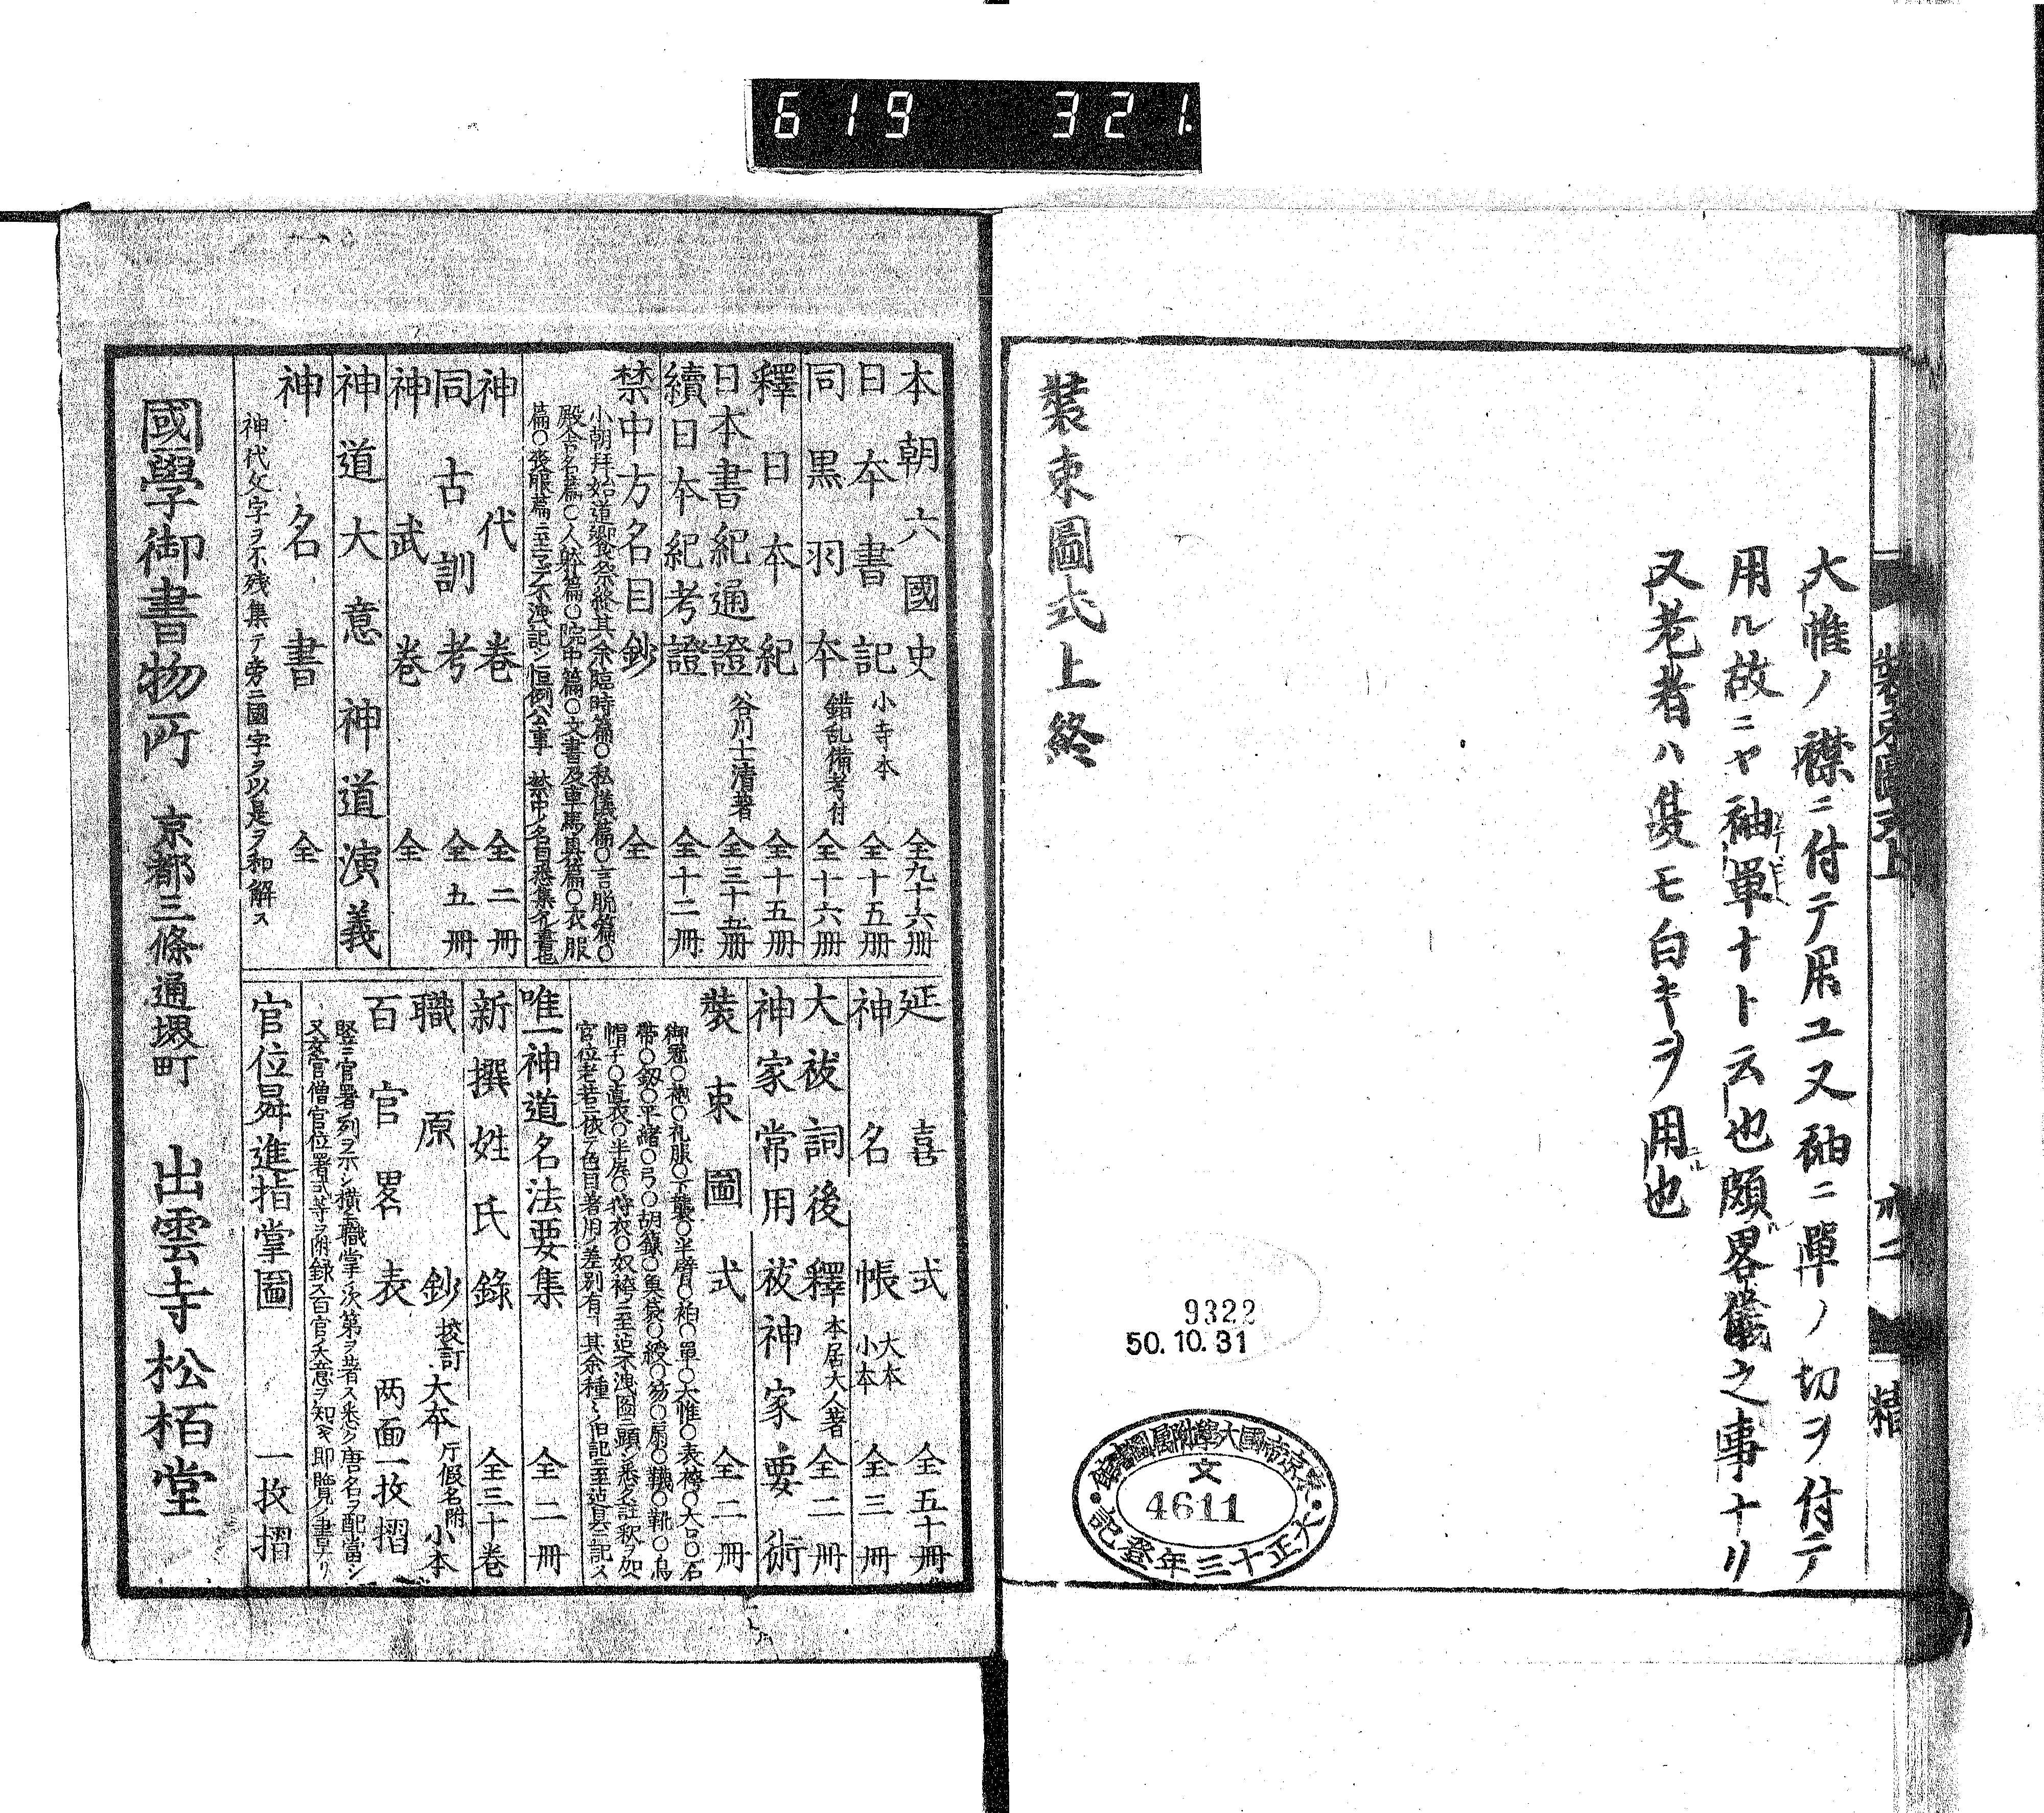 6 19 321.
大帷ノ襟ニ付テ用ユ又袖ニ單ノ切ヲ付テ
用ル故ニヤ袖單ナト云也頗畧儀之事ナリ
又老者ハ隻モ白キヲ用也
裝束圖式上終
9322
50.10.31
東京帝國大學附屬圖書館
文
4611
大正十三年登記
本朝六國史 全九十六册
日本書記 小寺本 全十五册
同黒羽本 錯乱備考付 全十六册
釋日本紀 全十五册
日本書紀通證 谷川士清著 全三十五册
續日本紀考證 全十二册
禁中方名目鈔 全
小朝拜始道饗祭終其余臨時篇〇私儀篇〇言脱篇〇
殿舍名篇〇人躰篇〇院中篇〇文書及車馬具篇〇衣服
神代巻 全二册
同古訓考 全五册
神武巻 全
神道大意 神道演義
神名書 全
神代文字ヲ不残集テ旁ニ國字ヲ以是ヲ和解ス
延喜式 全五十册
神名帳 大本 小本 全三册
大祓詞後釋 本居大人著 全二册
神家常用祓神家要術
裝束圖式 全二册
御冠〇袍〇礼服〇下襲〇半臂〇衵〇單〇大帷〇表袴〇大口〇石
帶〇釼〇平緒〇弓〇胡籙〇魚袋〇綬〇笏〇扇〇韈〇靴〇烏
官位老若ニ依テ色目著用ノ差別有リ其余種々
唯一神道名法要集 全二册
新撰姓氏錄 全三十巻
職原鈔 挍訂大本 庁假名附小本
百官畧表 両面一枚摺
竪ニ官署ノ列ヲ示シ横ニ職掌ノ次第ヲ著ス悉ク唐名ヲ配當シ
又女官僧官位署式等ヲ附録ス百官ノ大意ヲ知ベキ即覽ノ書ナリ
官位昇進指掌圖 一枚摺
國學御書物所 京都三條通堺町 出雲寺松栢堂